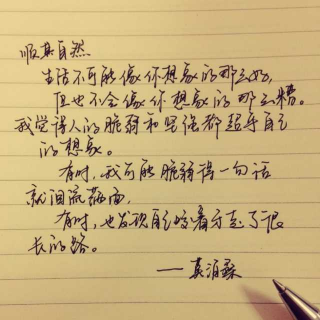 顺其自然
生活不可能像你想象的那么好,
但也不会像你想象的那么糟。
我觉得人的脆弱和坚强都超乎自己
的想象。
有时,我可能脆弱得一句话
就泪流满面,
有时,也发现自己咬着牙走了很
长的路。
——莫泊桑